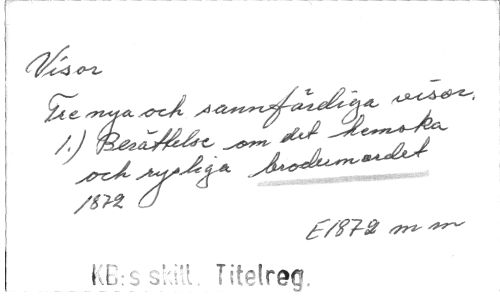 Visor
Tre nya och sannfärdiga visor.
1.) Berättelse om det hemska
och rysliga brodermordet
1872
E1872 m m
KB:s skill. Titelreg.